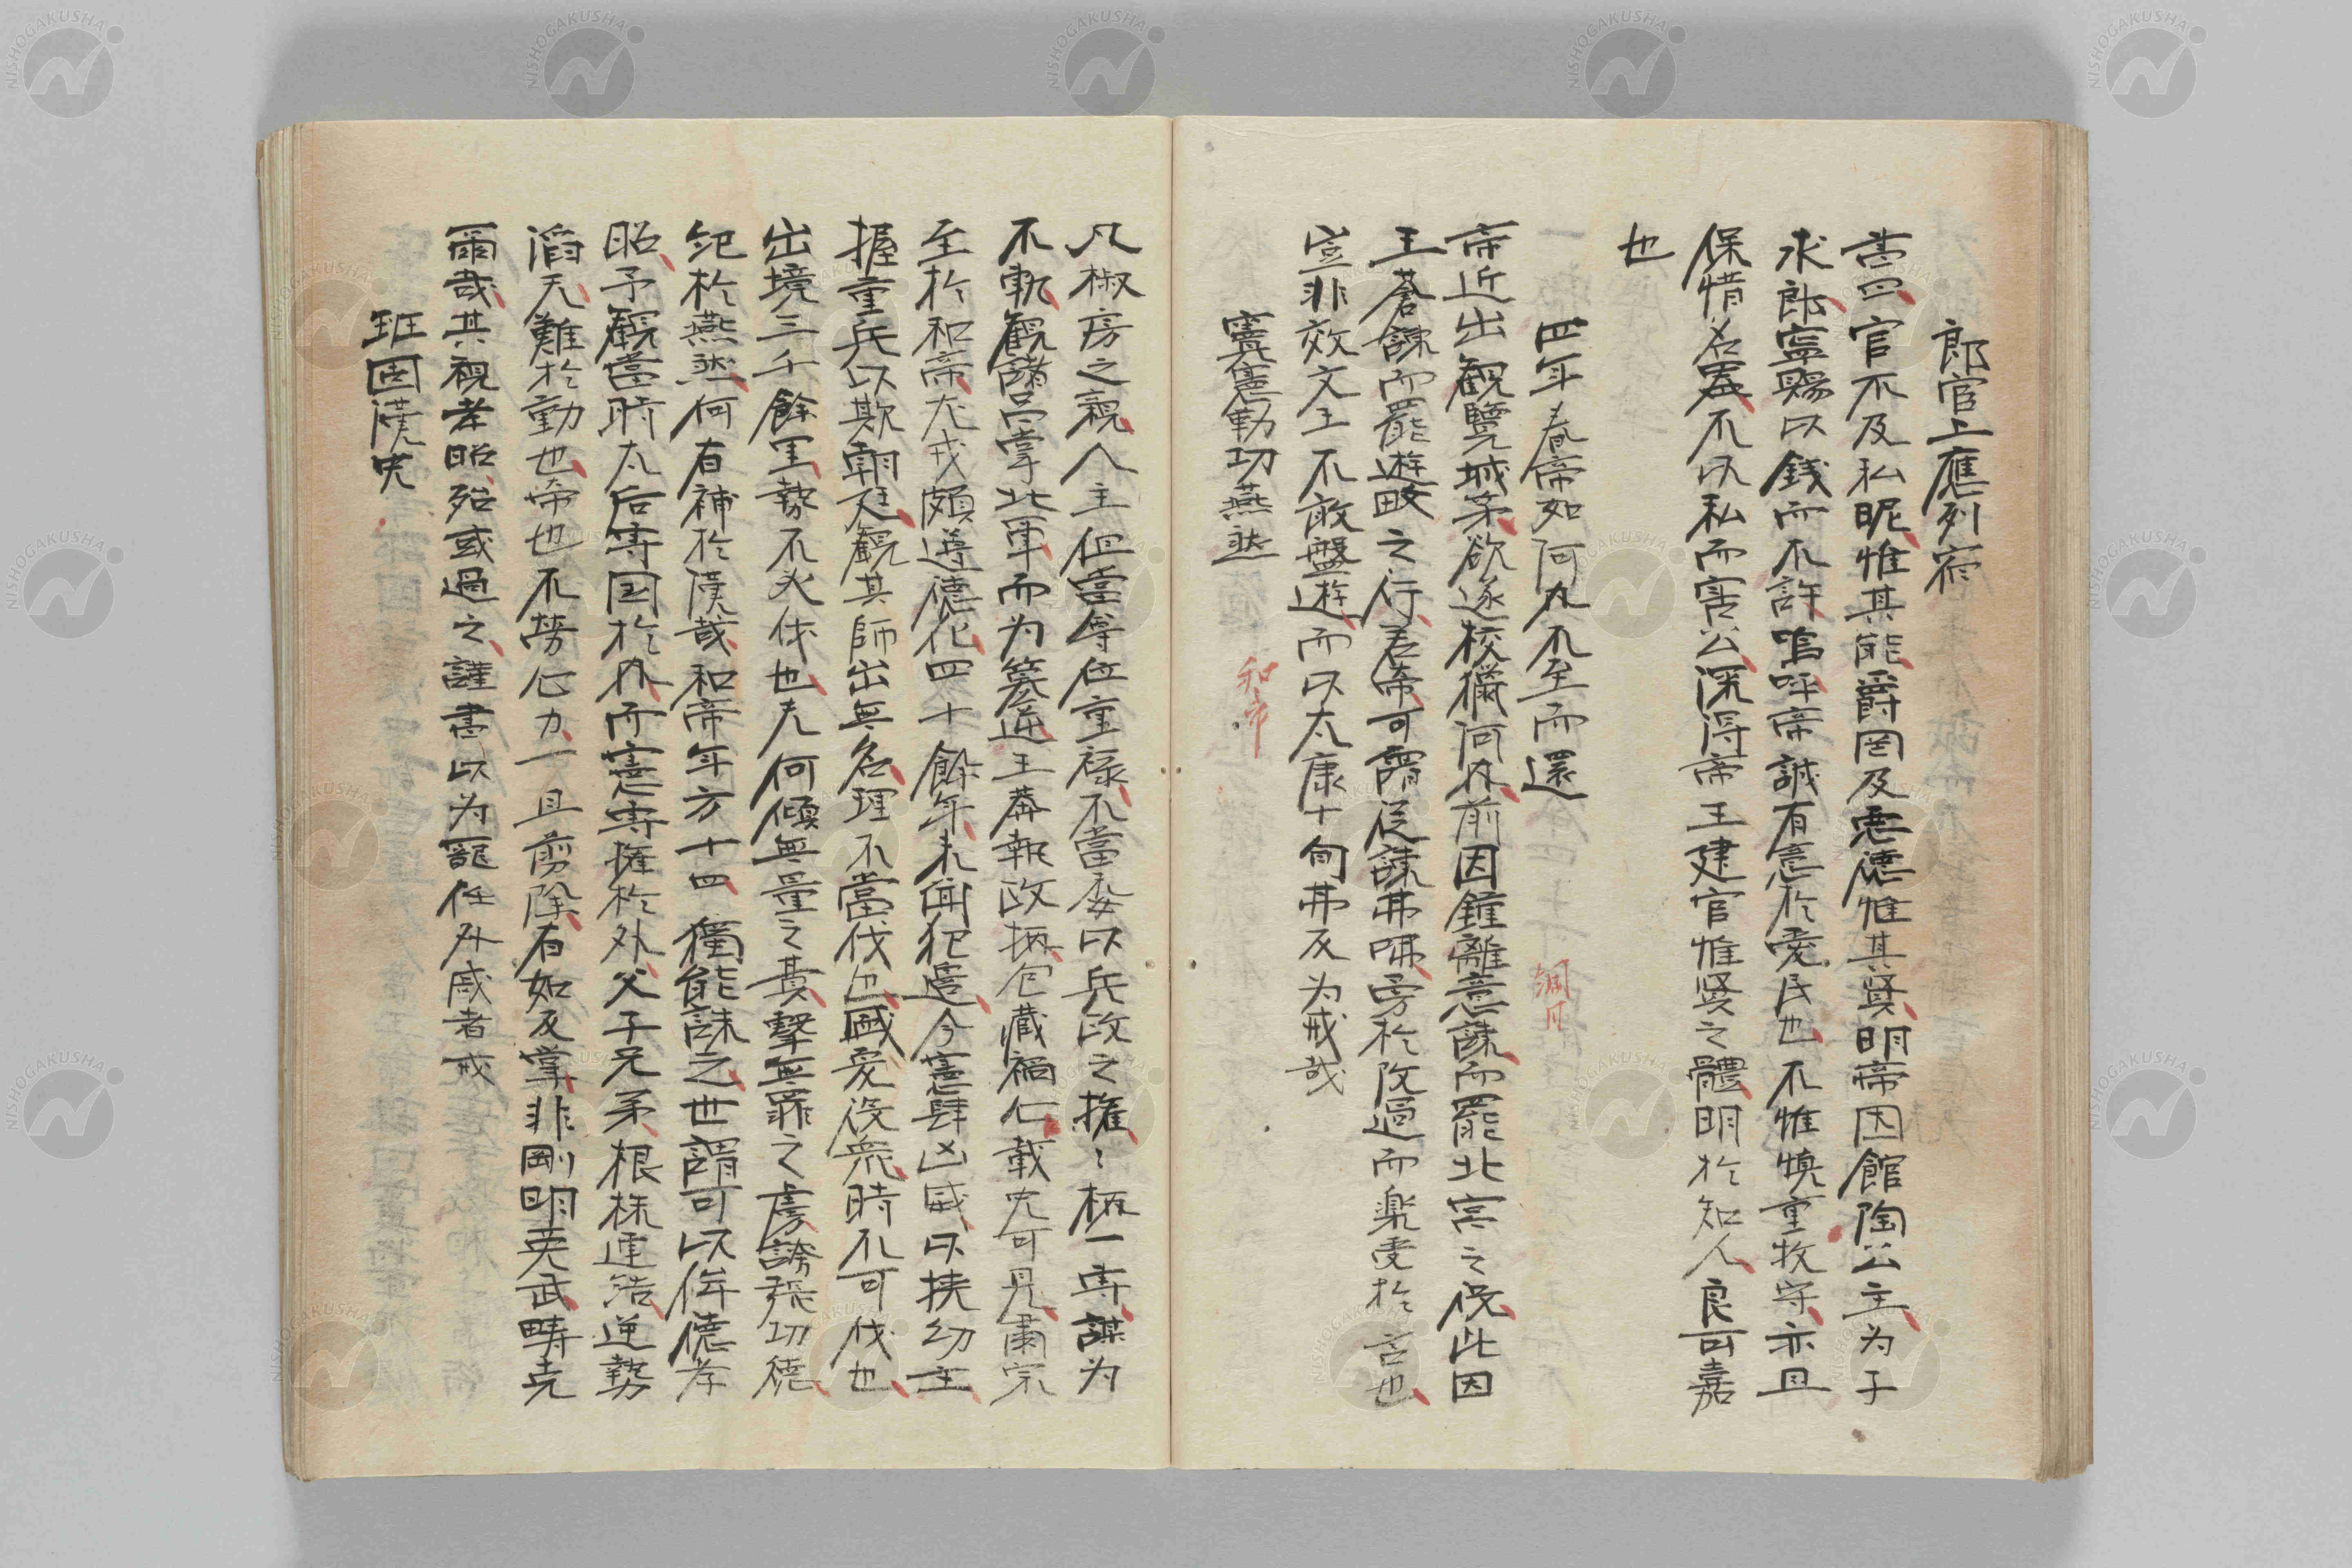 郎官上應列宿
書曰官不及私昵惟其能爵罔及悪德惟其賢明帝因館陶公主为子
求郎寧賜以錢而不許嗚呼帝誠有意於愛民也不惟慎重牧守亦且
保惜名器不以私而害公深得帝王建官惟賢之體明於知人良可嘉
也
四年春帝如河内不至而還
帝近出觀覽城第欲遂校獵河内前因鍾離意諫而罷北宮之役此因
王蒼諫而罷遊畋之行若帝可謂從諫弗咈勇於改過而樂受於言也
豈非效文王不敢盤遊而以太康十旬弗反为戒哉
竇憲勒功燕然 和帝
凡椒房之親人主但當尊位重禄不當委以兵政之權〻柄一專謀为
不軌觀諸呂掌北軍而为篡逆王莽執政柄包藏禍心載史可見肅宗
至於和帝尤戎頗遵德化四十餘年未聞犯邉今憲肆凶威以挟幼主
握重兵以欺朝廷觀其師出無名理不當伐也國爱役衆時不可伐也
出境三千餘里勢不必伐也夫何傾無量之費擊無罪之虜誇張功德
紀於燕然何有補於漢哉和帝年方十四獨能誅之世謂可以侔德孝
昭予觀當時太后專国於内而憲專權於外父子兄弟根株連結逆勢
滔天難於動也帝也不勞心力一旦剪除有如反掌非剛明英武疇克
爾哉其視孝昭殆或過之謹書以为寵任外戚者戒
班固漢史